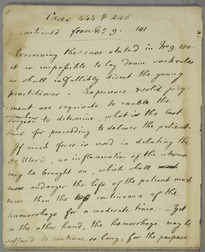 Cases 444 & 446
continued from No 9. 101
Concerning the case stated in No 9. 100.
it is impossible to lay down such rules
as shall infallibly direct the young
practitioner. Experience & solid judg-
ment are requisite to enable the
to determine, what is the best
time for proceeding to deliver the patient.
If much force is used in dilating the
Os Uteri, an inflammation of the uterus
may be brought on, which shall
more endanger the life of the patient much
more than the continuance of the
hæmorrhage for a moderate time. Yet
on the other hand, the hæmorrhage may be
suffered to continue so long, for the purpose